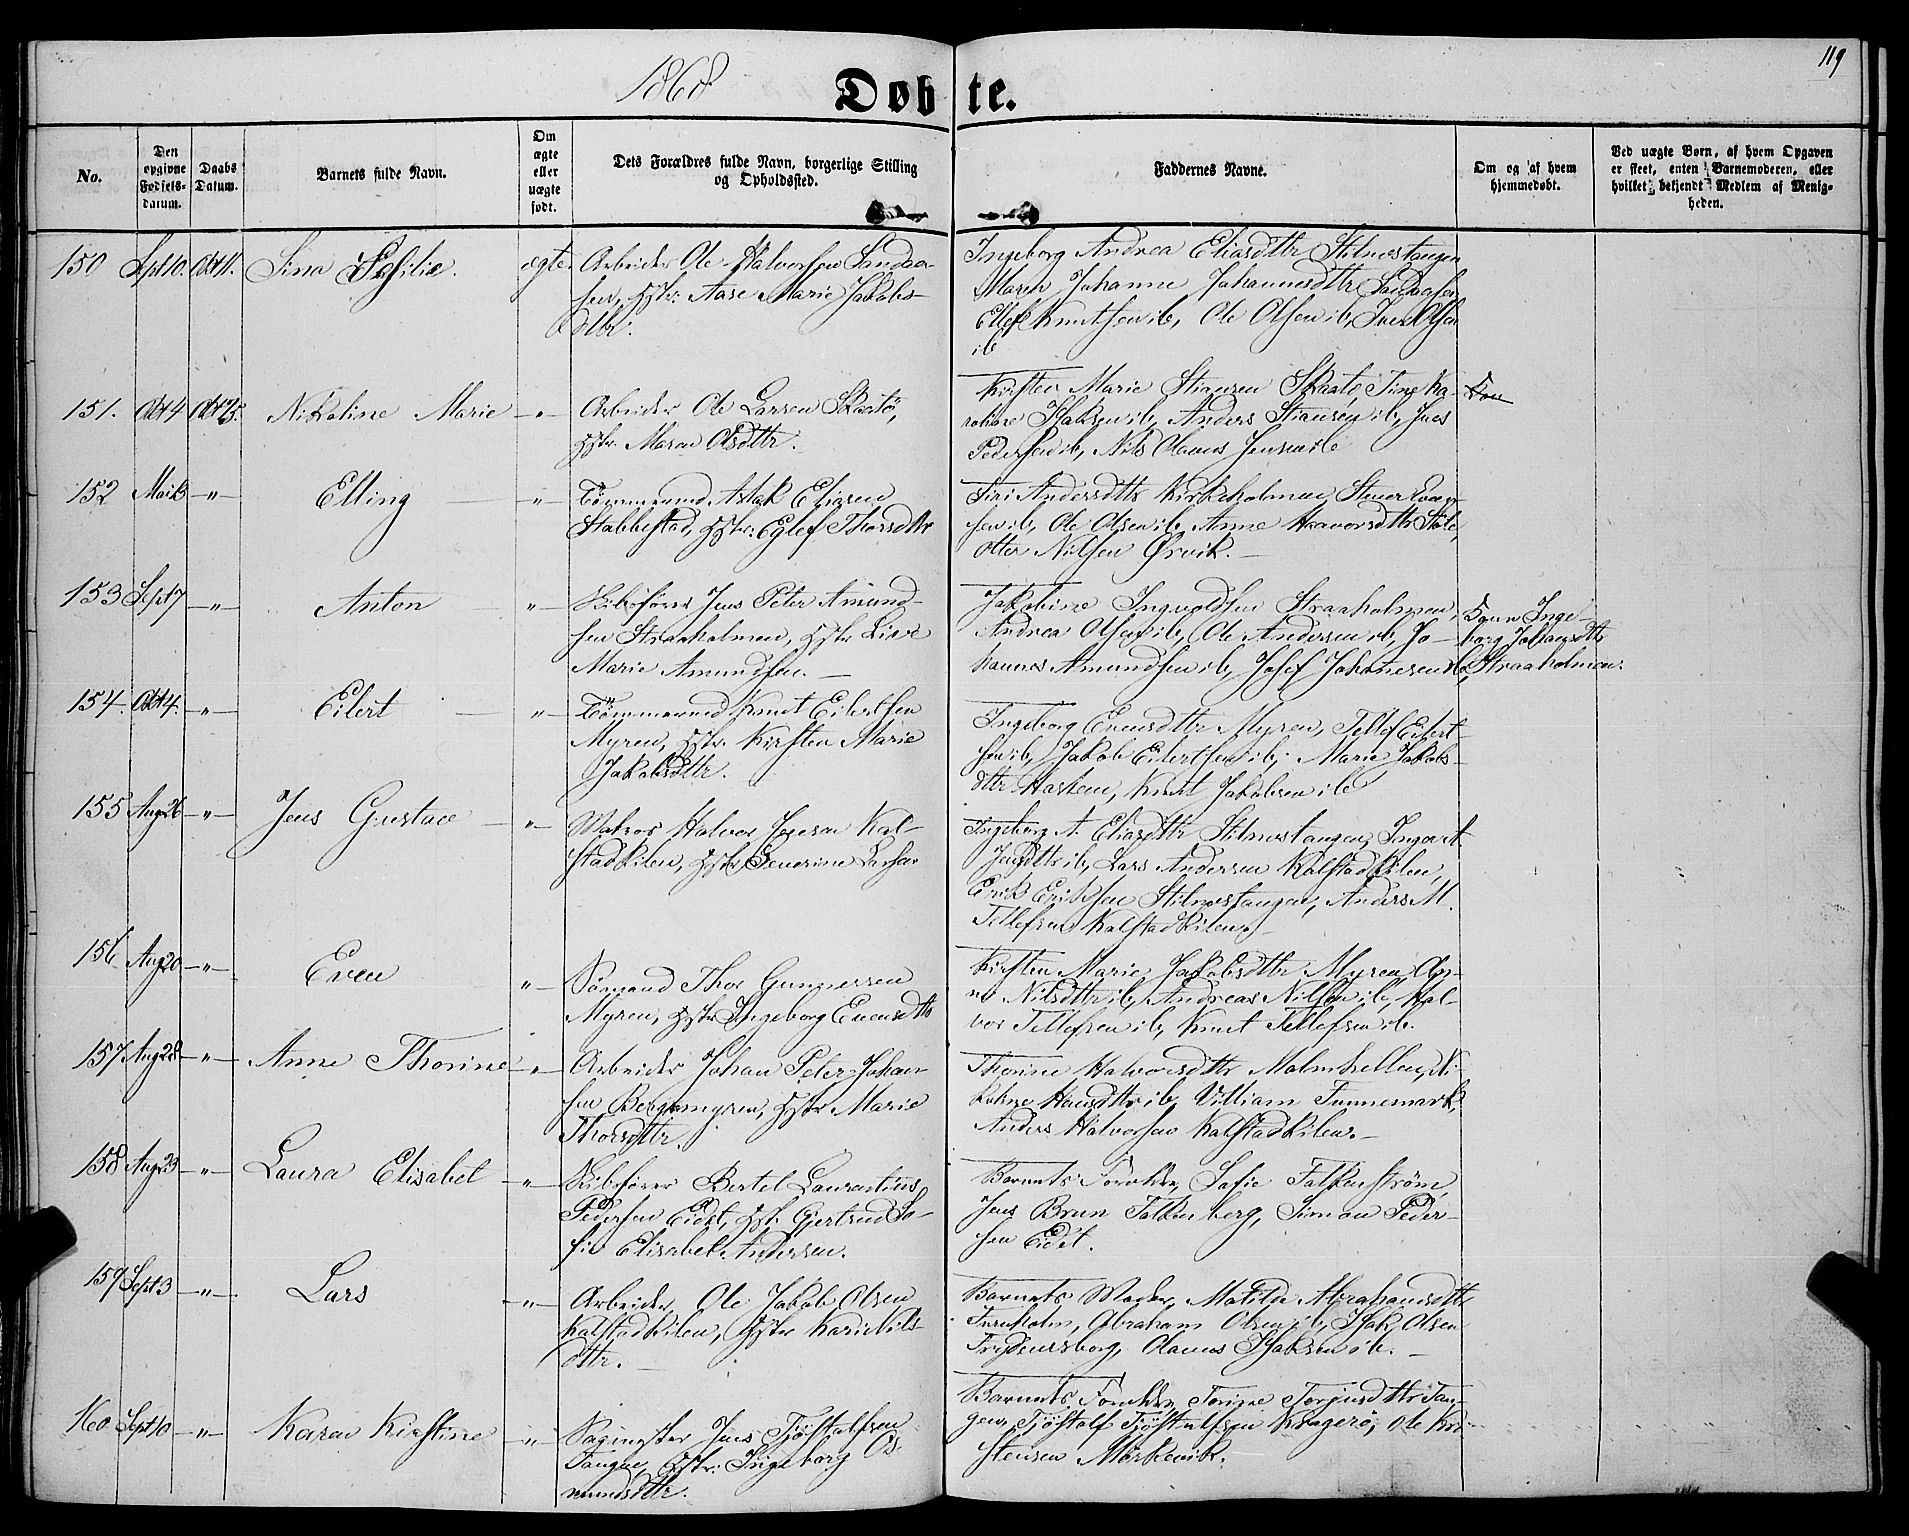 119
1868
Døbte.
No.
Den opgivne Fødsels-datum.
Daabs Datum.
Barnets fulde Navn.
Om ægte eller uægte født.
Dets Forældres fulde Navn, borgerlige Stilling og Opholdssted.
Faddernes Navne.
Om og af hvem hjemmedøbt.
Ved uægte Børn, af hvem Opgaven er skeet, enten Barnemoderen, eller hvilket bekjendt Medlem af Menigheden.
150 Sept 10. Okt 11. Sina ægte. Arbeider Ole Halvorsen Sandaa-
sen, Hstr: Aase Marie Jakobs-
dtr.
Ingeborg Andrea Eliasdtr Stilnestangen
Maren Johanne Johannesdtr Sandaasen
Ellef Knutsen ib, Ole Olsen ib, Iver Olsen
ib
151. Okt 4 Okt 25. Nikoline Marie -"- Arbeider Ole Larsen Skaatø,
Hstr. Maren Olsdtr.
Kirsten Marie Stiansen Skaatø, Tine Ka-
roline Isaksen ib, Anders Stiansen ib, Jens
Pedersen ib, Nils Olaves Jensen ib
152 Mai 13 -"- Elling -"- Tømmermd. Aslak Eliasen
Stabbestad, Hstr: Eglef Thorsdtr
Siri Andersdtr Kirkeholmen, Stener Even-
sen ib, Ole Olsen ib, Anne Haavorsdtr
Otter Nilsen Ørvik.
153 Sept 7 -"- Anton -"- Skibsfører Jens Peter Amund-
sen Straaholmen, Hstr Live
Marie Amundsen.
Jakobine Ingvoldsen Straaholmen,
Andrea Olsen ib, Ole Andersen ib, Jo-
hannes Amundsen ib, Josef Johannesen ib,
Inge
borg Johansdtr
Straaholmen.
154. Okt 4. -"- Eilert -"- Tømmermd Knut Eilertsen
Myren, Hstr. Kirsten Marie
Jakobsdtr.
Ingeborg Evensdtr Myren, Tellef Eilert-
sen ib, Jakob Eilertsen ib, Marie Jakobs-
dtr Hasken, Knut Jakobsen ib
155 Aug 26 -"- Jens Gustav -"- Matros Halvor Jensen Kal-
stadkilen, Hstr Severine Larsen
Ingeborg A. Eliasdtr Stilnestangen, Ingort
Jensdtr ib, Lars Andersen Kalstadkilen,
Erik Eriksen Stilnestangen, Anders M.
Tellefsen Kalstadkilen.
156 Aug 20 -"- Even -"- Sømand Thor Gunnersen
Myren, Hstr Ingeborg Evensdtr
Kirsten Marie Jakobsdtr Myren, An-
ne Nilsdtr ib, Andreas Nilsen ib, Hal-
vor Tellefsen ib, Knut Tellefsen ib.
157. Aug 28 -"- Anne Thorine -"- Arbeider Johan Peter Johan-
sen Bergsmyren, Hstr Marie
Thorsdtr.
Thorine Halvorsdtr Malmhellen, Ni-
koline Hansdtr ib, Villiam Tunnemark,
Anders Halvorsen Kalstadkilen.
158 Aug 23 -"- Laura Elisabet -"- Skibsfører Bertel Laurentius
Pedersen Eidet, Hstr. Gjertrud So-
fie Elisabet Andersen.
Barnets Forældre, Sofie Falkenstrøm,
Jens Brun Falkenberg, Simon Peder-
sen Eidet.
159 Sept 3 -"- Lars -"- Arbeider Ole Jakob Olsen
Kalstadkilen, Hstr Kari Nils-
dtr.
Barnets Moder, Matilde Abrahamsdtr
Furuholm, Abraham Olsen ib, Isak Olsen
Frydensborg, Olaves Isaksen ib.
160 Sept 10 -"- Karen Kirstine -"- Sagmester Jens Tjøstolfsen
Tangen, Hstr: Ingeborg Os-
mundsdtr.
Barnets Forældre, Torine Torjusdtr Tan-
gen, Tjøstolf Tjøstolfsen Kragerø, Ole Kri-
stensen Mørkevik.